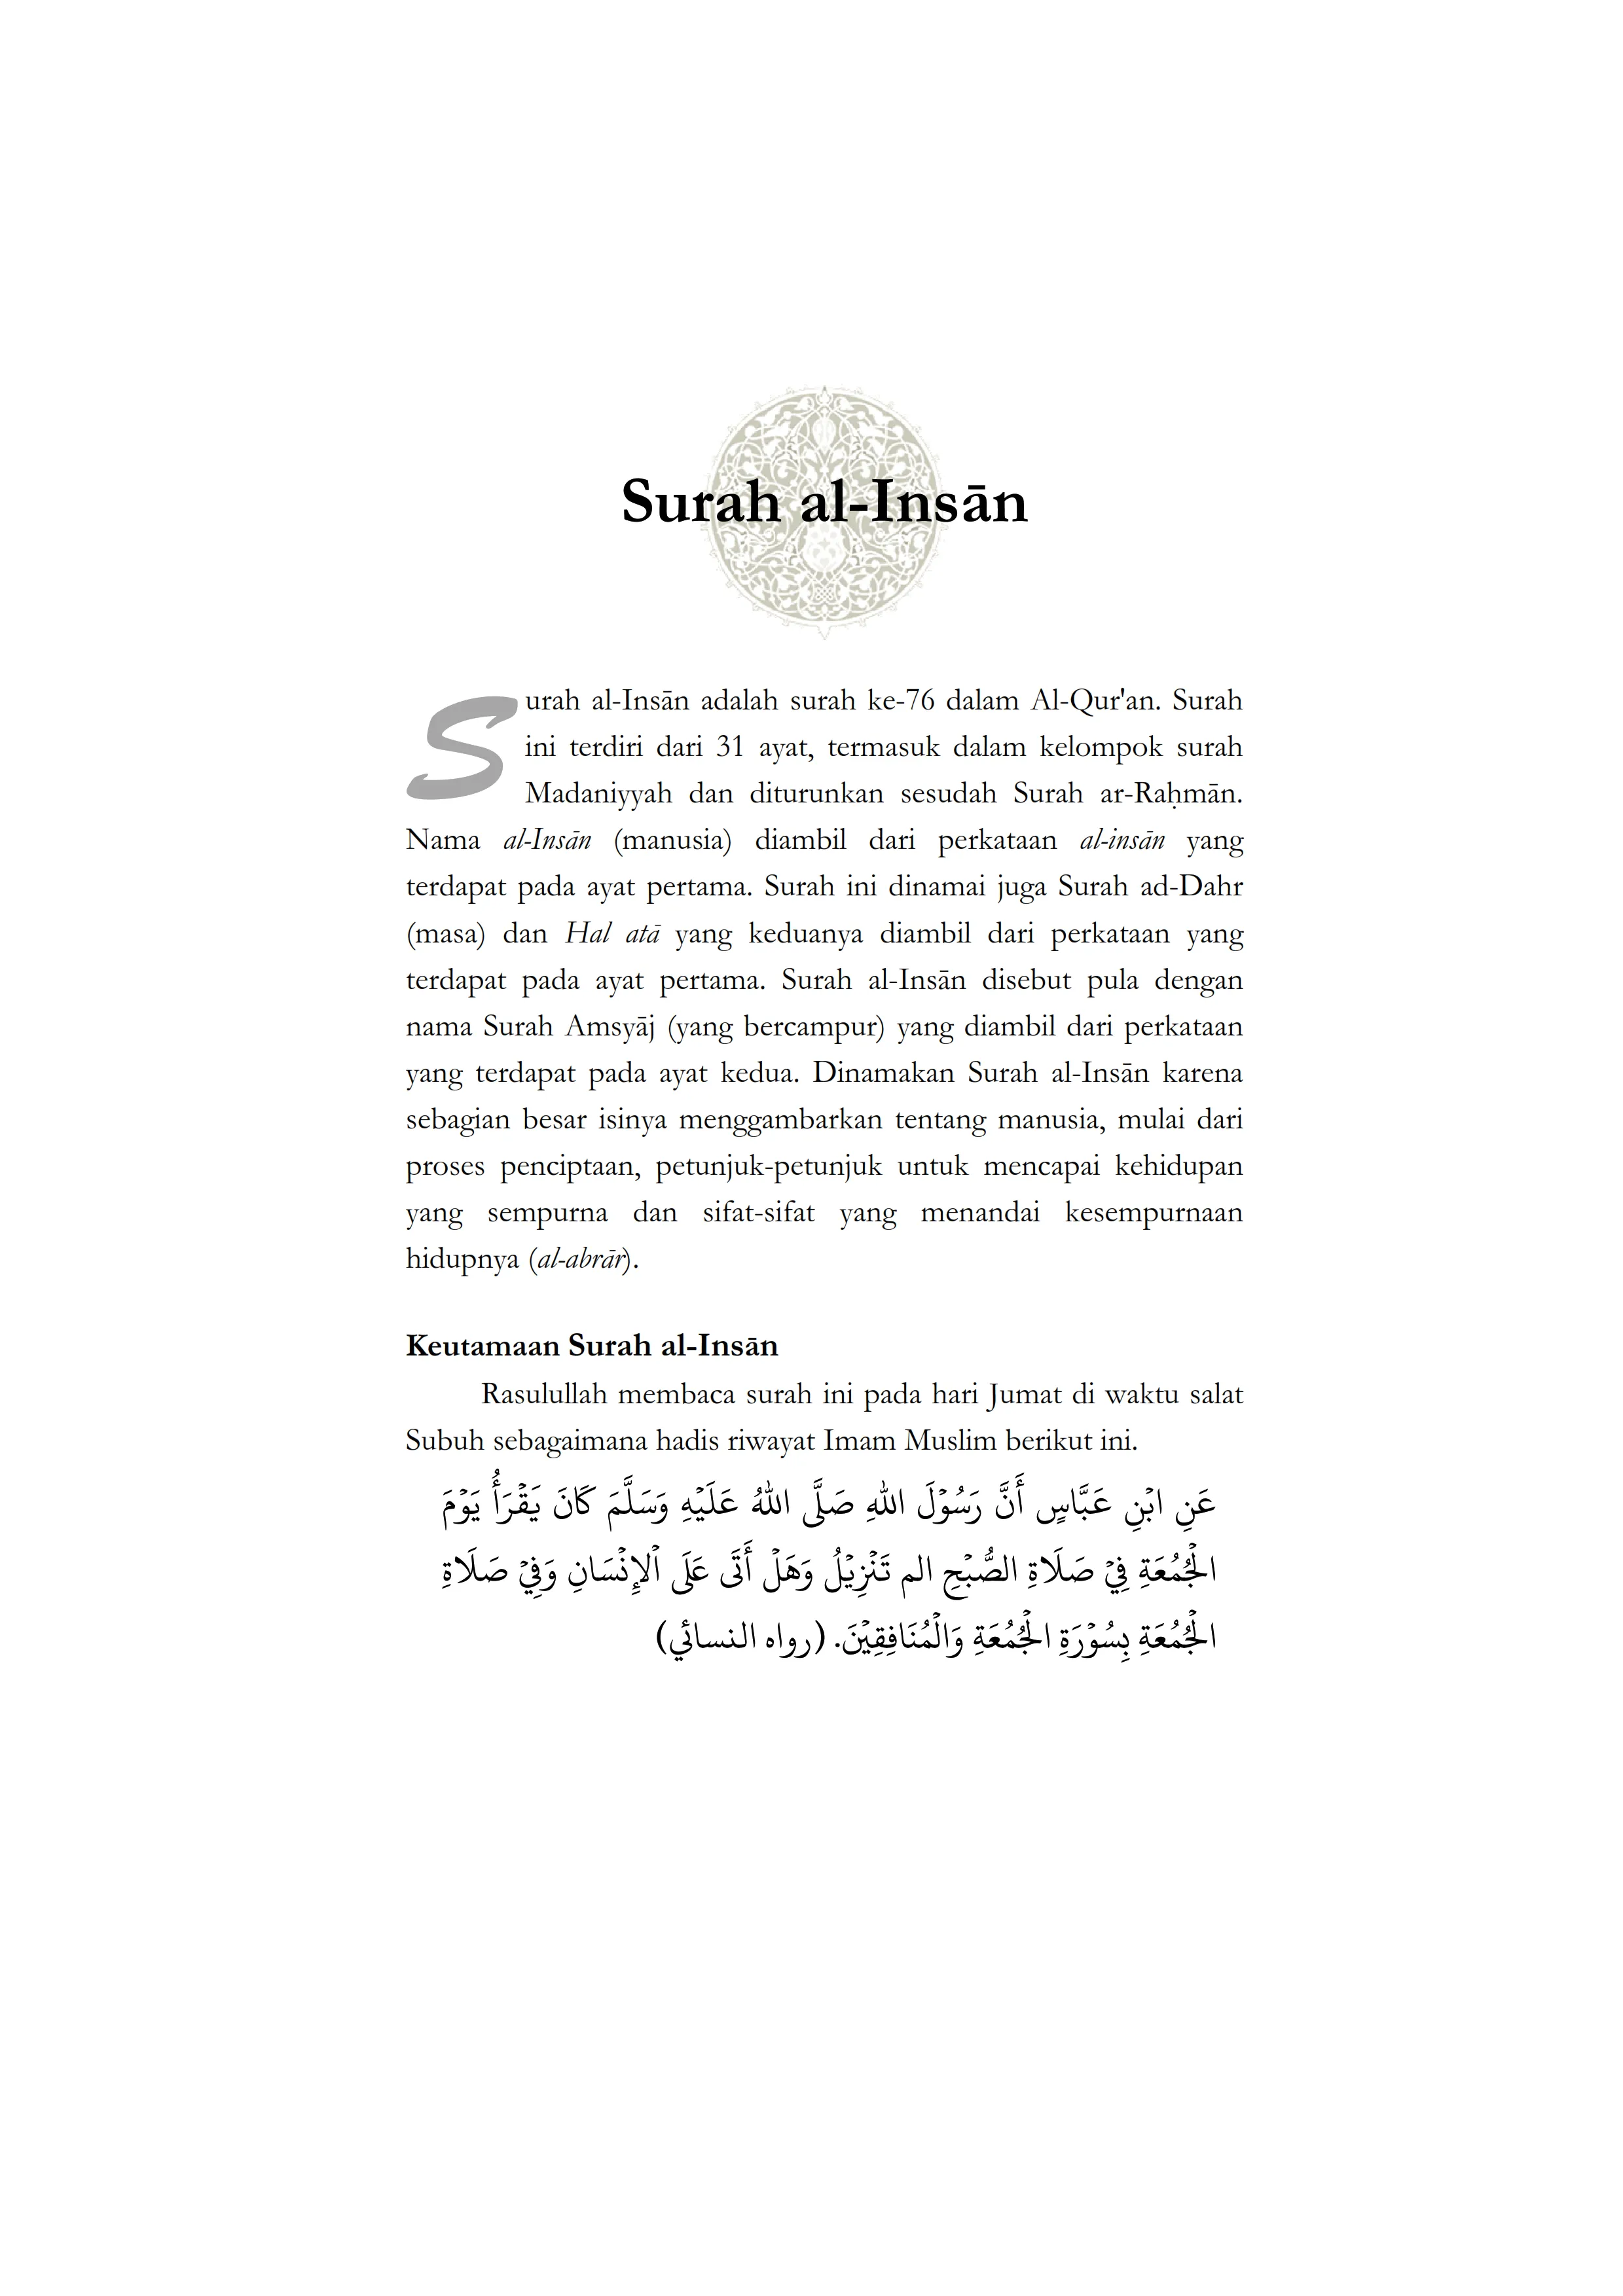 Surah al-Insān
Surah al-Insān adalah surah ke-76 dalam Al-Qur'an. Surah
ini terdiri dari 31 ayat, termasuk dalam kelompok surah
Madaniyyah dan diturunkan sesudah Surah ar-Raḥmān.
Nama al-Insān (manusia) diambil dari perkataan al-insān yang
terdapat pada ayat pertama. Surah ini dinamai juga Surah ad-Dahr
(masa) dan Hal atā yang keduanya diambil dari perkataan yang
terdapat pada ayat pertama. Surah al-Insān disebut pula dengan
nama Surah Amsyāj (yang bercampur) yang diambil dari perkataan
yang terdapat pada ayat kedua. Dinamakan Surah al-Insān karena
sebagian besar isinya menggambarkan tentang manusia, mulai dari
proses penciptaan, petunjuk-petunjuk untuk mencapai kehidupan
yang sempurna dan sifat-sifat yang menandai kesempurnaan
hidupnya (al-abrār).
Keutamaan Surah al-Insān
Rasulullah membaca surah ini pada hari Jumat di waktu salat
Subuh sebagaimana hadis riwayat Imam Muslim berikut ini.
عَنِ ابْنِ عَبَّاسٍ أَنَّ رَسُوْلَ اللهِ صَلَّى اللهُ عَلَيْهِ وَسَلَّمَ كَانَ يَقْرَأُ يَوْمَ
الْجُمُعَةِ فِيْ صَلَاةِ الصُّبْحِ الم تَنْزِيْلُ وَهَلْ أَتَى عَلَى اْلإِنْسَانِ وَفِيْ صَلَاةِ
الْجُمُعَةِ بِسُوْرَةِ الْجُمُعَةِ وَالْمُنَافِقِيْنَ. (رواه النسائي)